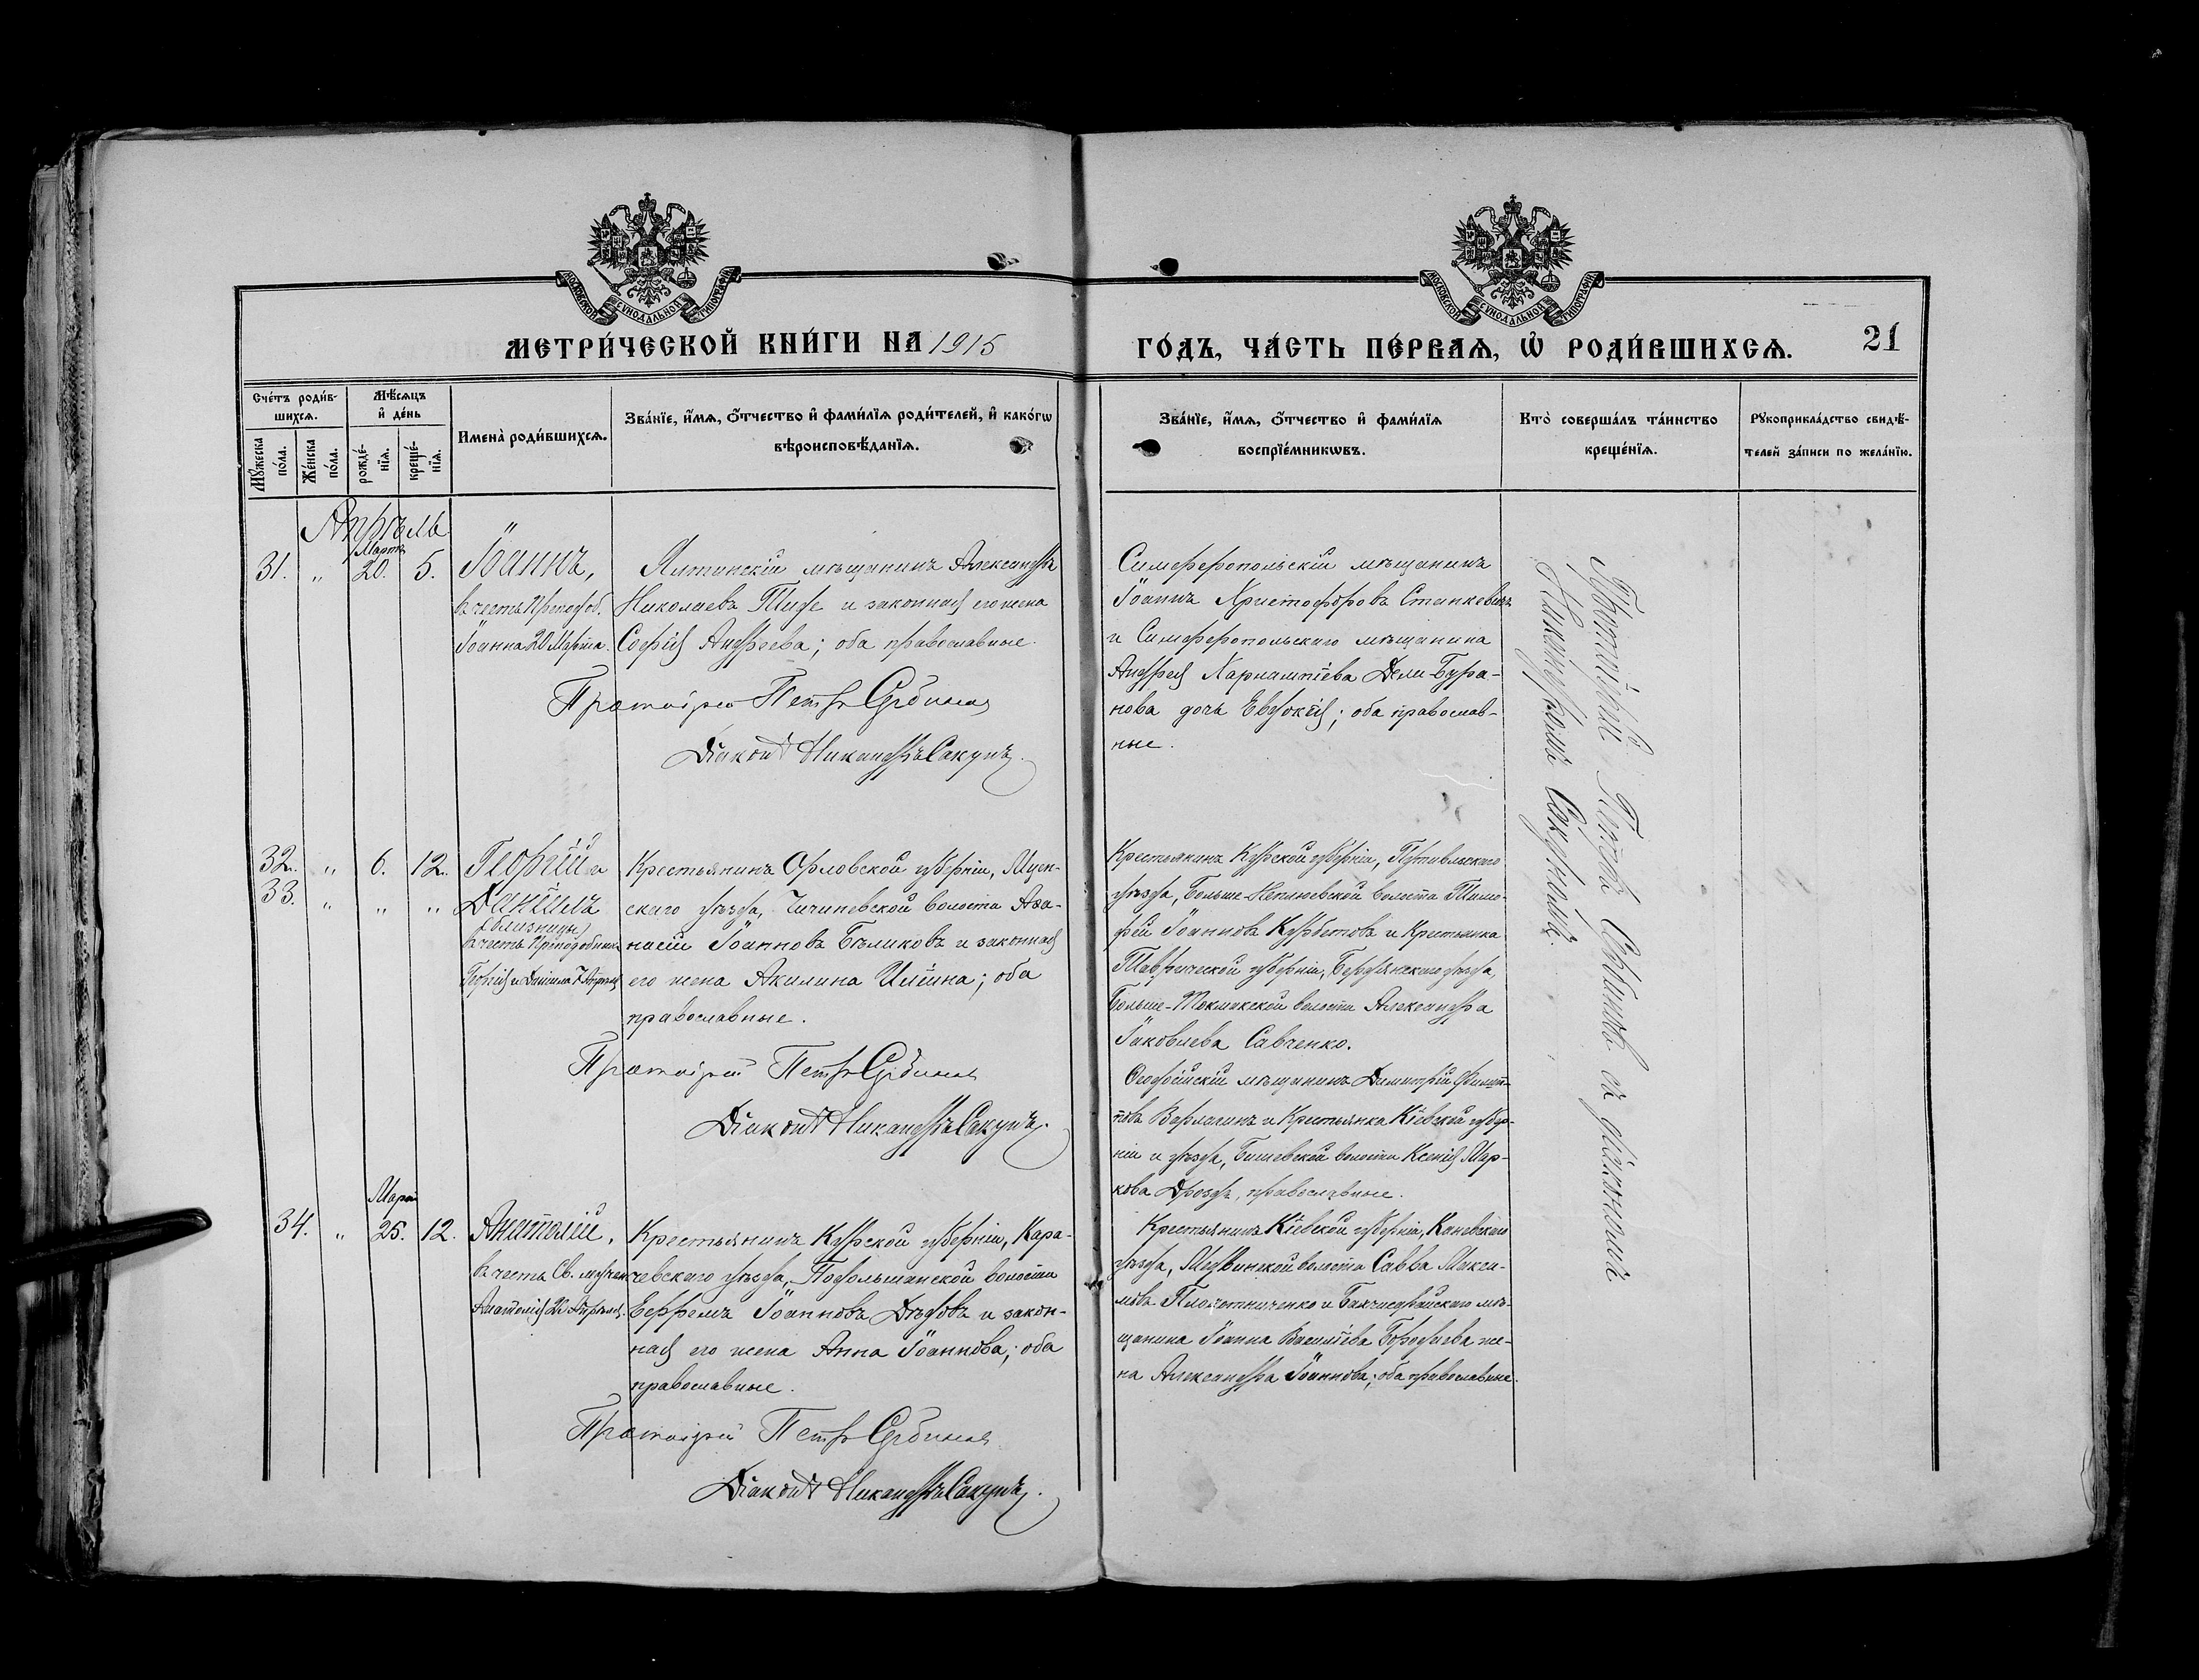 МОСКОВСКОЙ СѴНОДАЛЬНОЙ ТИПОГРАФІИ
МОСКОВСКОЙ СѴНОДАЛЬНОЙ ТИПОГРАФІИ
МЕТРИ́ЧЕСКОЙ КНИ́ГИ НА 1915
ГО́ДЪ, ЧА́СТЬ ПЕ́РВАѦ, Ѡ РОДИ́ВШИХСѦ.
21
Сче́тъ роди́в-
шихсѧ.
Мѣ́сѧцъ
и҆ де́нь
Мꙋ́жеска
по́ла.
Же́нска
по́ла.
рожде́-
нїѧ.
креще́-
нїѧ.
Имена̀ роди́вшихсѧ.
Зва́нїе, и҆́мѧ, ѻ҆́тчество и҆ фами́лїѧ роди́телей, и҆ како́гѡ
вѣроисповѣ́данїѧ.
Зва́нїе, и҆́мѧ, ѻ҆́тчество и҆ фами́лїѧ
воспрїе́мникѡвъ.
Кто̀ соверша́лъ та́инство
креще́нїѧ.
Рꙋкоприкла́дство свидѣ́-
телей за́писи по жела́нїю.
Апрѣль
31. " Марта 20. 5.
Іоаннъ,
въ честь Преподоб.
Іоанна 20 Марта.
Ялтинскій мѣщанинъ Александръ
Николаевъ и законная его жена
Софія Андреева; оба православные.
Протоіерей Петръ Сербиновъ
Діаконъ Никандръ Сакунъ.
Симферопольскій мѣщанинъ
Іоаннъ Христофоровъ Станкевичъ
и Симферопольскаго мѣщанина
Андрея Харлампіева Дели-Бура-
нова дочь Евдокія; оба православ-
ные.
Протоіерей Петръ Сербиновъ съ діакономъ
Никандромъ Сакуномъ.
32. " 6. 12.
33. " " "
Георгій и
Даніилъ
(близнецы)
въ честь Преподобныхъ
Георгія и Даніила 7 Апрѣля
Крестьянинъ Орловской губерніи, Мцен-
скаго уѣзда, волости Аѳа-
насій Іоанновъ Бѣликовъ и законная
его жена Акилина Ильина; оба
православные.
Протоіерей Петръ Сербиновъ
Діаконъ Никандръ Сакунъ.
Крестьянинъ Курской губерніи, Путивльскаго
уѣзда, волости Тимо-
фей Іоанновъ Курбетовъ и Крестьянка
Таврической губерніи, Бердянскаго уѣзда,
Больше-Токмакской волости Александра
Іаковлева Савченко.
Ѳеодосійскій мѣщанинъ Димитрій Филип-
повъ Варлагинъ и Крестьянка Кіевской губер-
ніи и уѣзда, Бышевской волости Ксенія Мар-
кова Дроздъ, православные.
34. " Марта 25. 12.
Анатолій,
въ честь Св. мученика
Анатолія 23 Апрѣля.
Крестьянинъ Курской губерніи, Кара-
чевскаго уѣзда, Подолынской волости
Ефремъ Іоанновъ Дѣдовъ и закон-
ная его жена Анна Іоаннова; оба
православные.
Протоіерей Петръ Сербиновъ
Діаконъ Никандръ Сакунъ.
Крестьянинъ Кіевской губерніи, Каневскаго
уѣзда, Медвинской волости Савва Макси-
мовъ Плохотниченко и Бахчисарайскаго мѣ-
щанина Іоанна Васильева Бородаева же-
на Александра Іоаннова; оба православные.